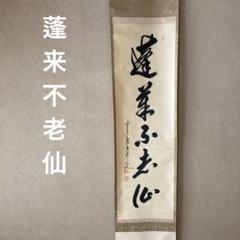 蓬来不老仙
蓬莱不老仙